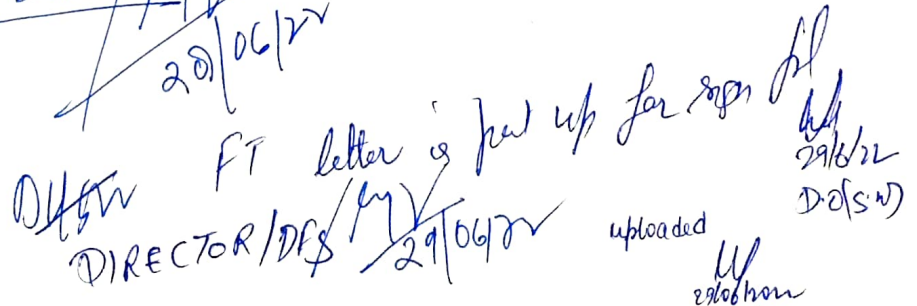 28/06/22
FT letter is put up for sign pl
29/6/22
D.O(S.W)
DIRECTOR/DFS
29/06/22
uploaded
29/06/2022